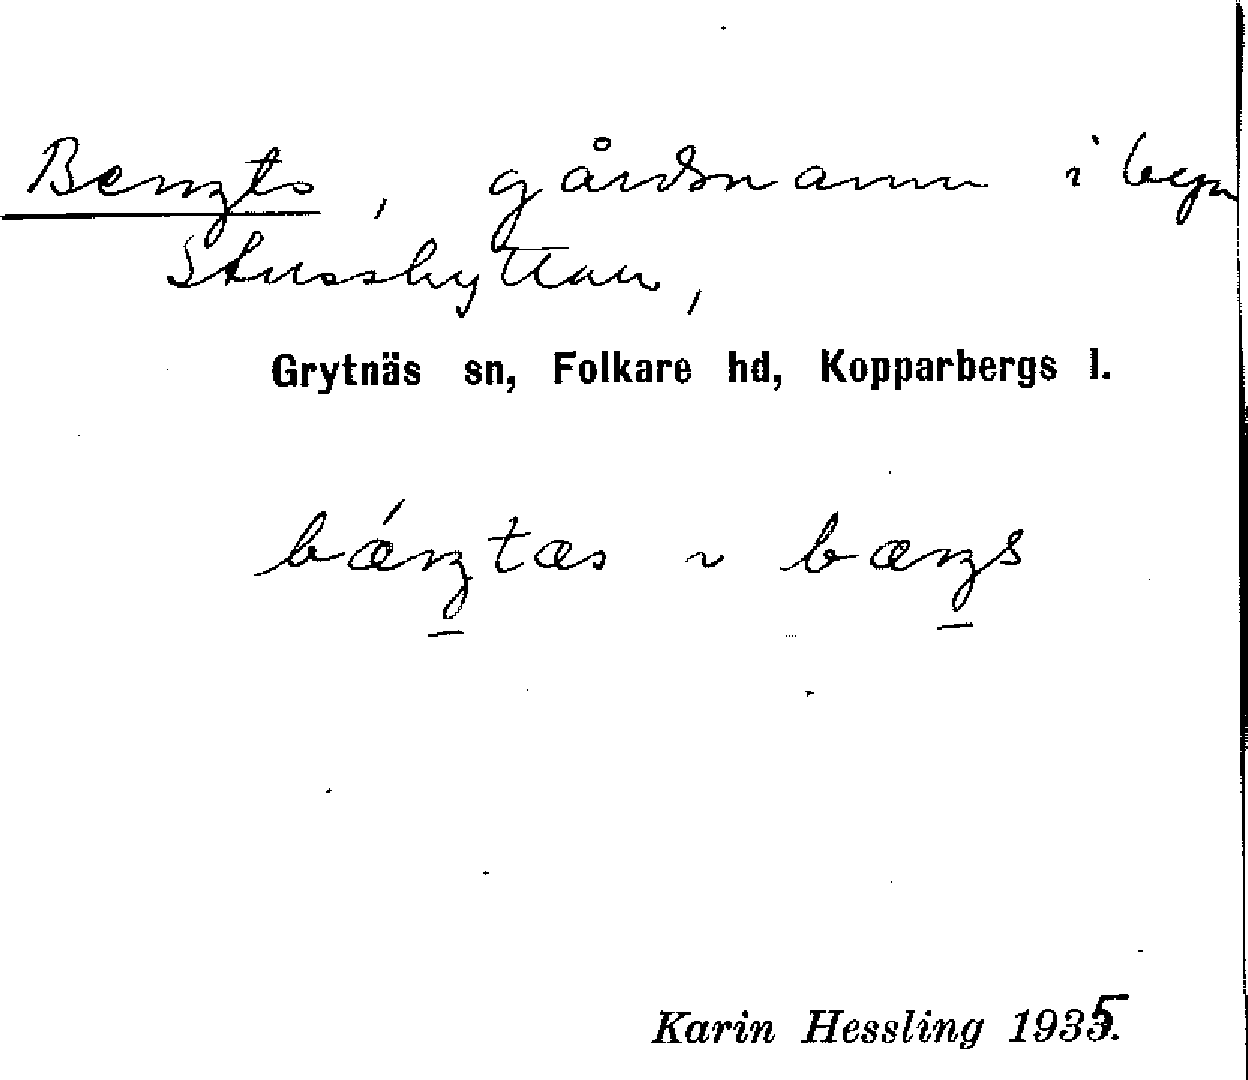 Benzts, gårdsnamn i byn
Stusshyttan,
Grytnäs sn, Folkare hd, Kopparbergs l.
bǽnztæs ~ bænzs
Karin Hessling 1935.